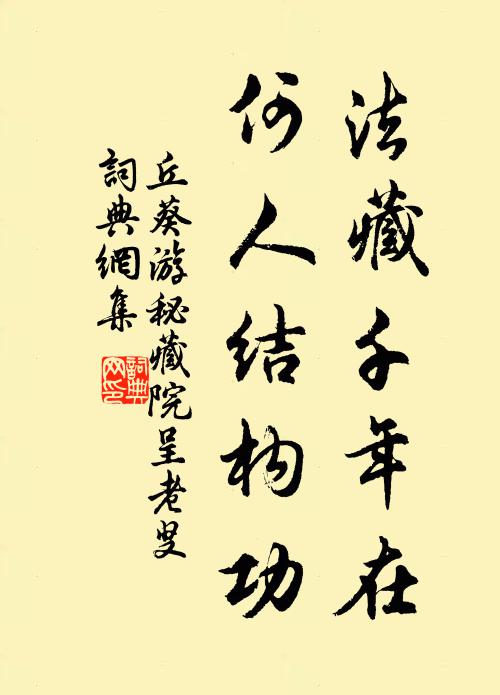 法藏千年在
何人结构功
丘葵游秘藏院呈老叟
詞典網集
詞典
网印